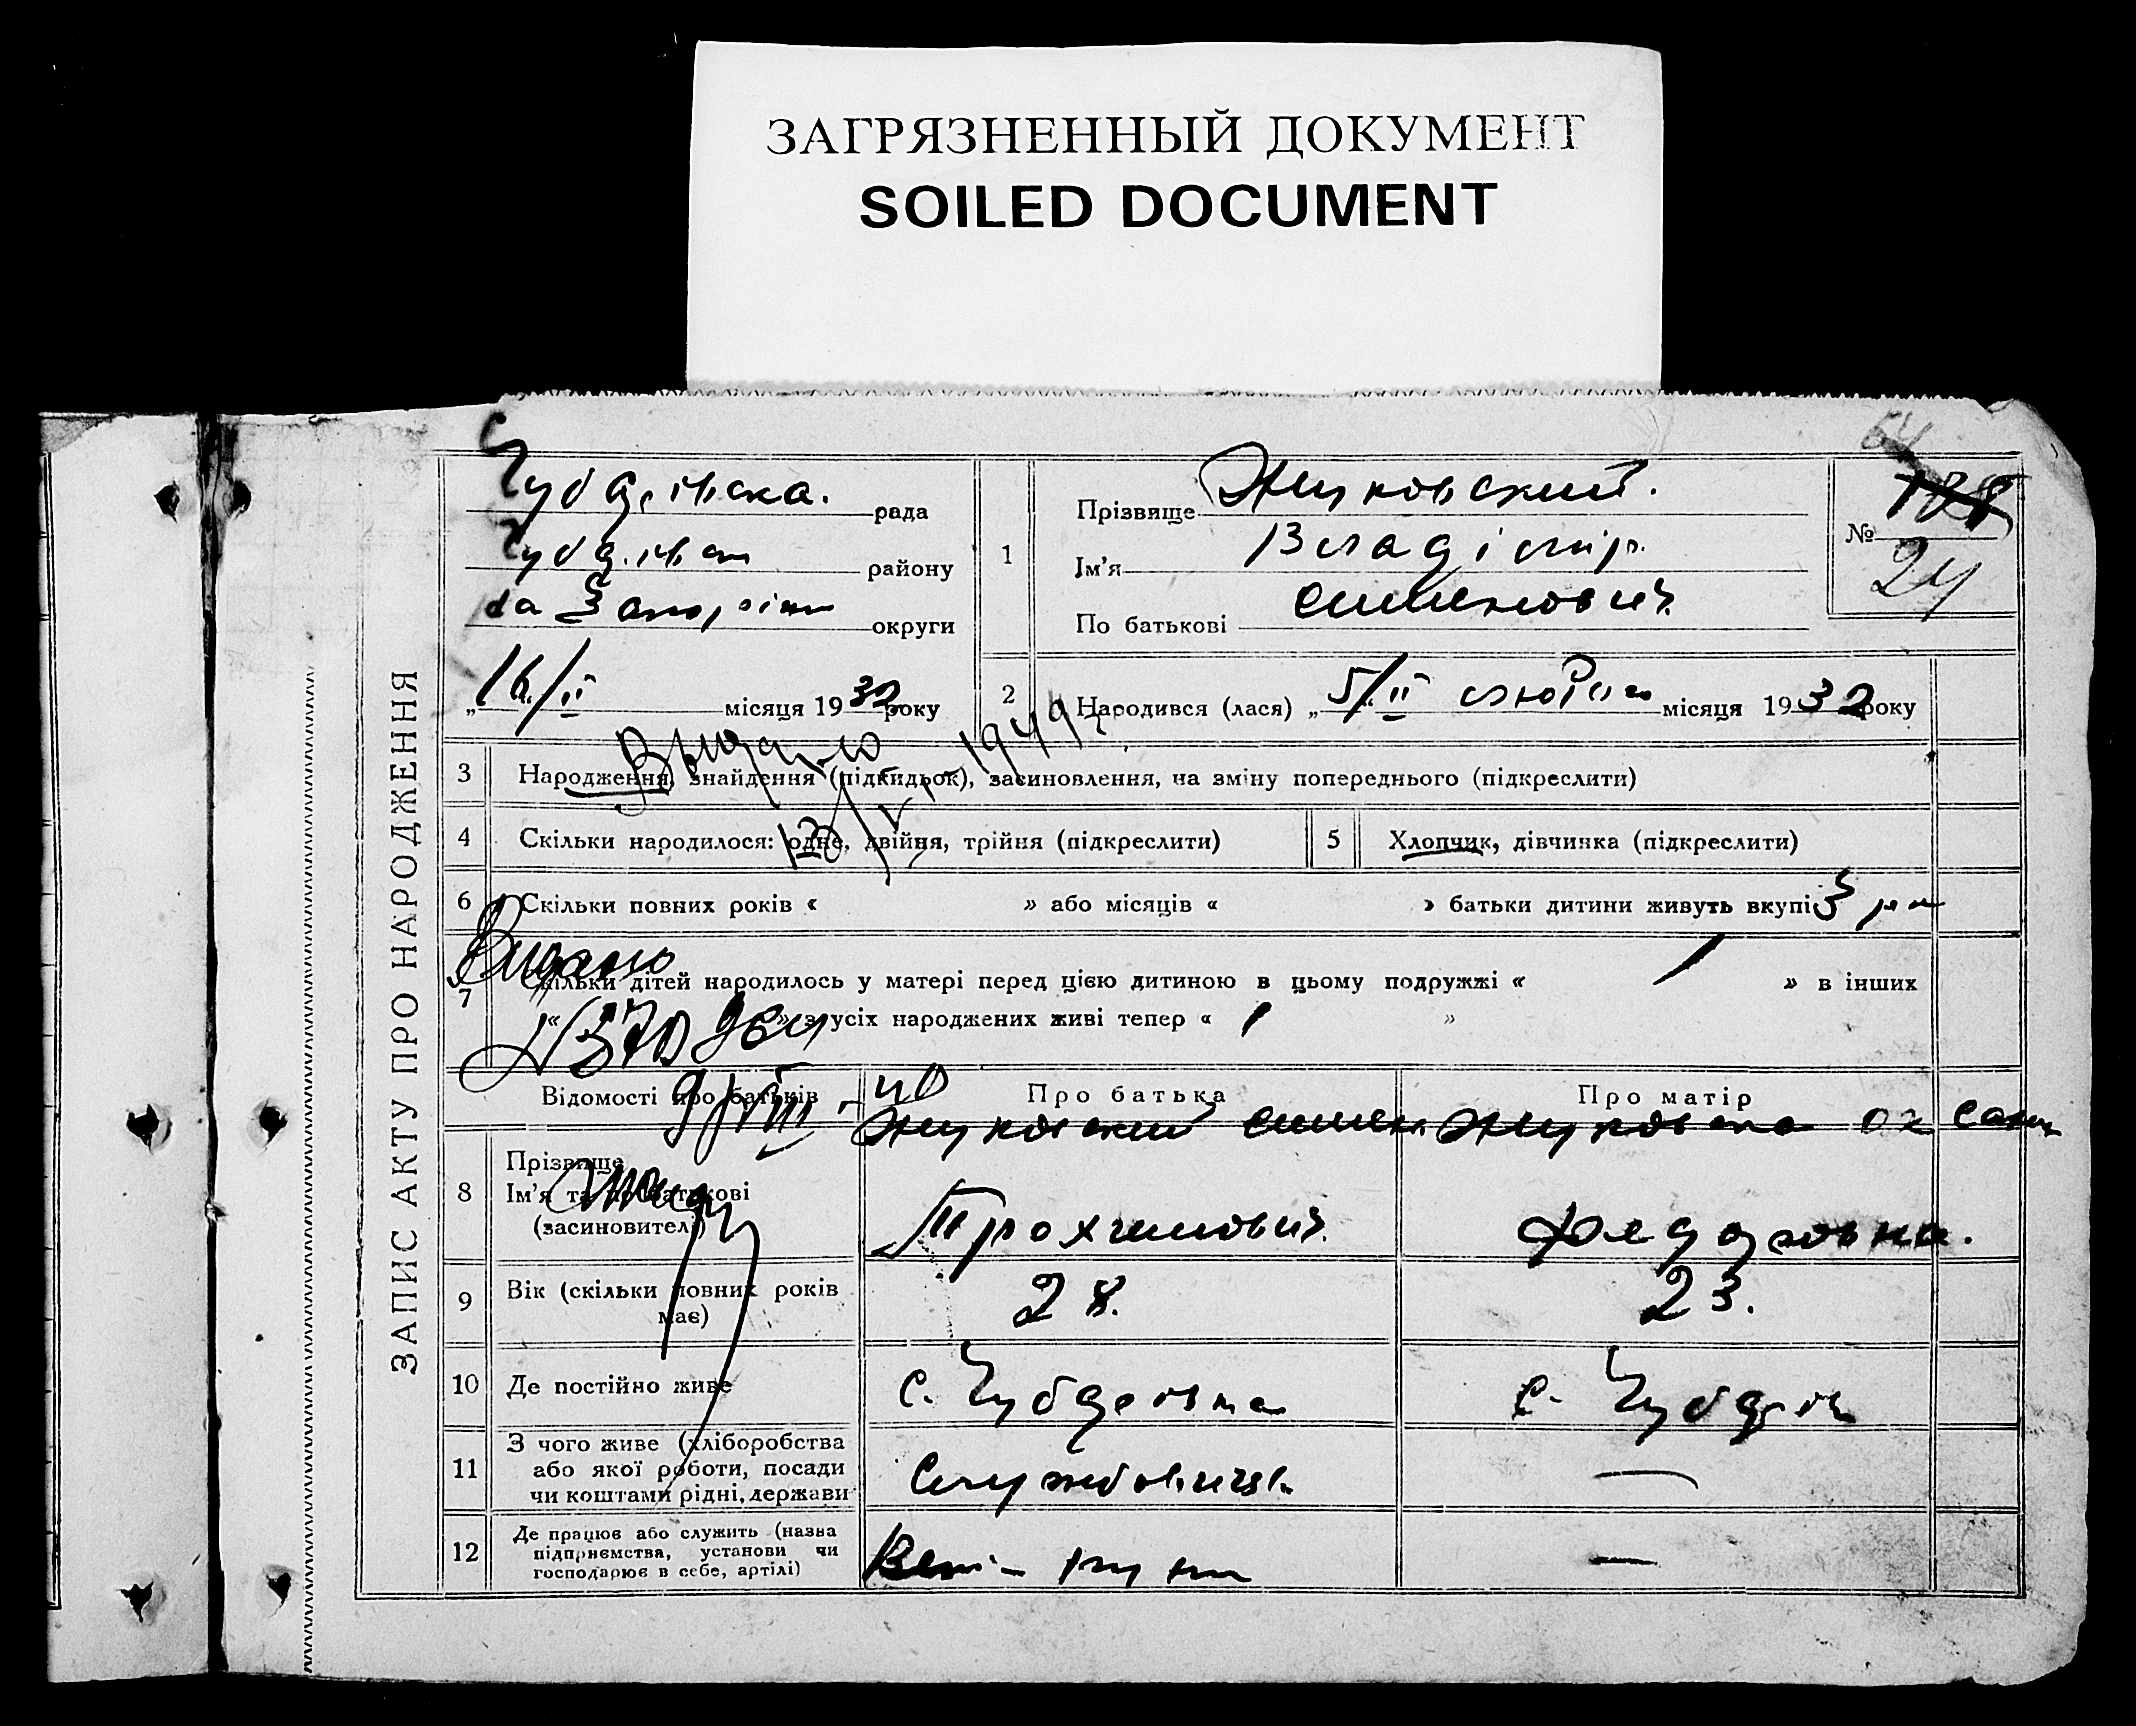 ЗАГРЯЗНЕННЫЙ ДОКУМЕНТ
SOILED DOCUMENT
64
ЗАПИС АКТУ ПРО НАРОДЖЕННЯ
рада
району
округи
16/II місяця 1932 року
1
Прізвище Жуковский.
Ім'я Владімір.
По батькові Сименович
№ 178
24
2 Народився (лася) „5/II" лютого місяця 1932 року
3 Народження, знайдення (підкидьок), засиновлення, на зміну попереднього (підкреслити)
4 Скільки народилося: одне, двійня, трійня (підкреслити)
5 Хлопчик, дівчинка (підкреслити)
6 Скільки повних років « » або місяців « » батьки дитини живуть вкупі 3
7 Скільки дітей народилось у матері перед цією дитиною в цьому подружжі « 1 » в інших
« » з усіх народжених живі тепер « 1 »
Видано
1949
Видано
Відомості про батьків
Про батька
Про матір
8 Прізвище
Ім'я та по батькові
(засиновителі)
Жуковский Симен
Трохимович
Жуковска
Федоровна.
9 Вік (скільки повних років має)
28.
23.
10 Де постійно живе
с. Чубаревка
с.
11 З чого живе (хліборобства
або якої роботи, посади
чи коштами рідні, держави
Службовець
—
12 Де працює або служить (назва
підприємства, установи чи
господарює в себе, артілі)
—